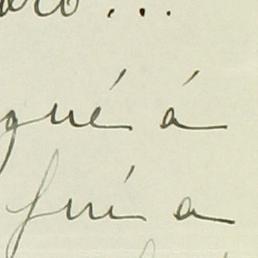 oro...
gué á
fuí a